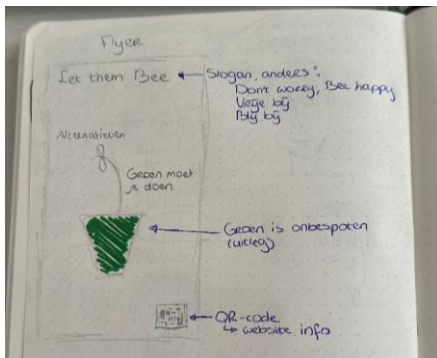 Flyer
Let them Bee
Slogan, anders:
Don't worry, Bee happy
Vrije bij
Blij bij
Alternatieven
Groen moet
je doen
Groen is onbespoten
(uitleg)
QR-code
↳ website info